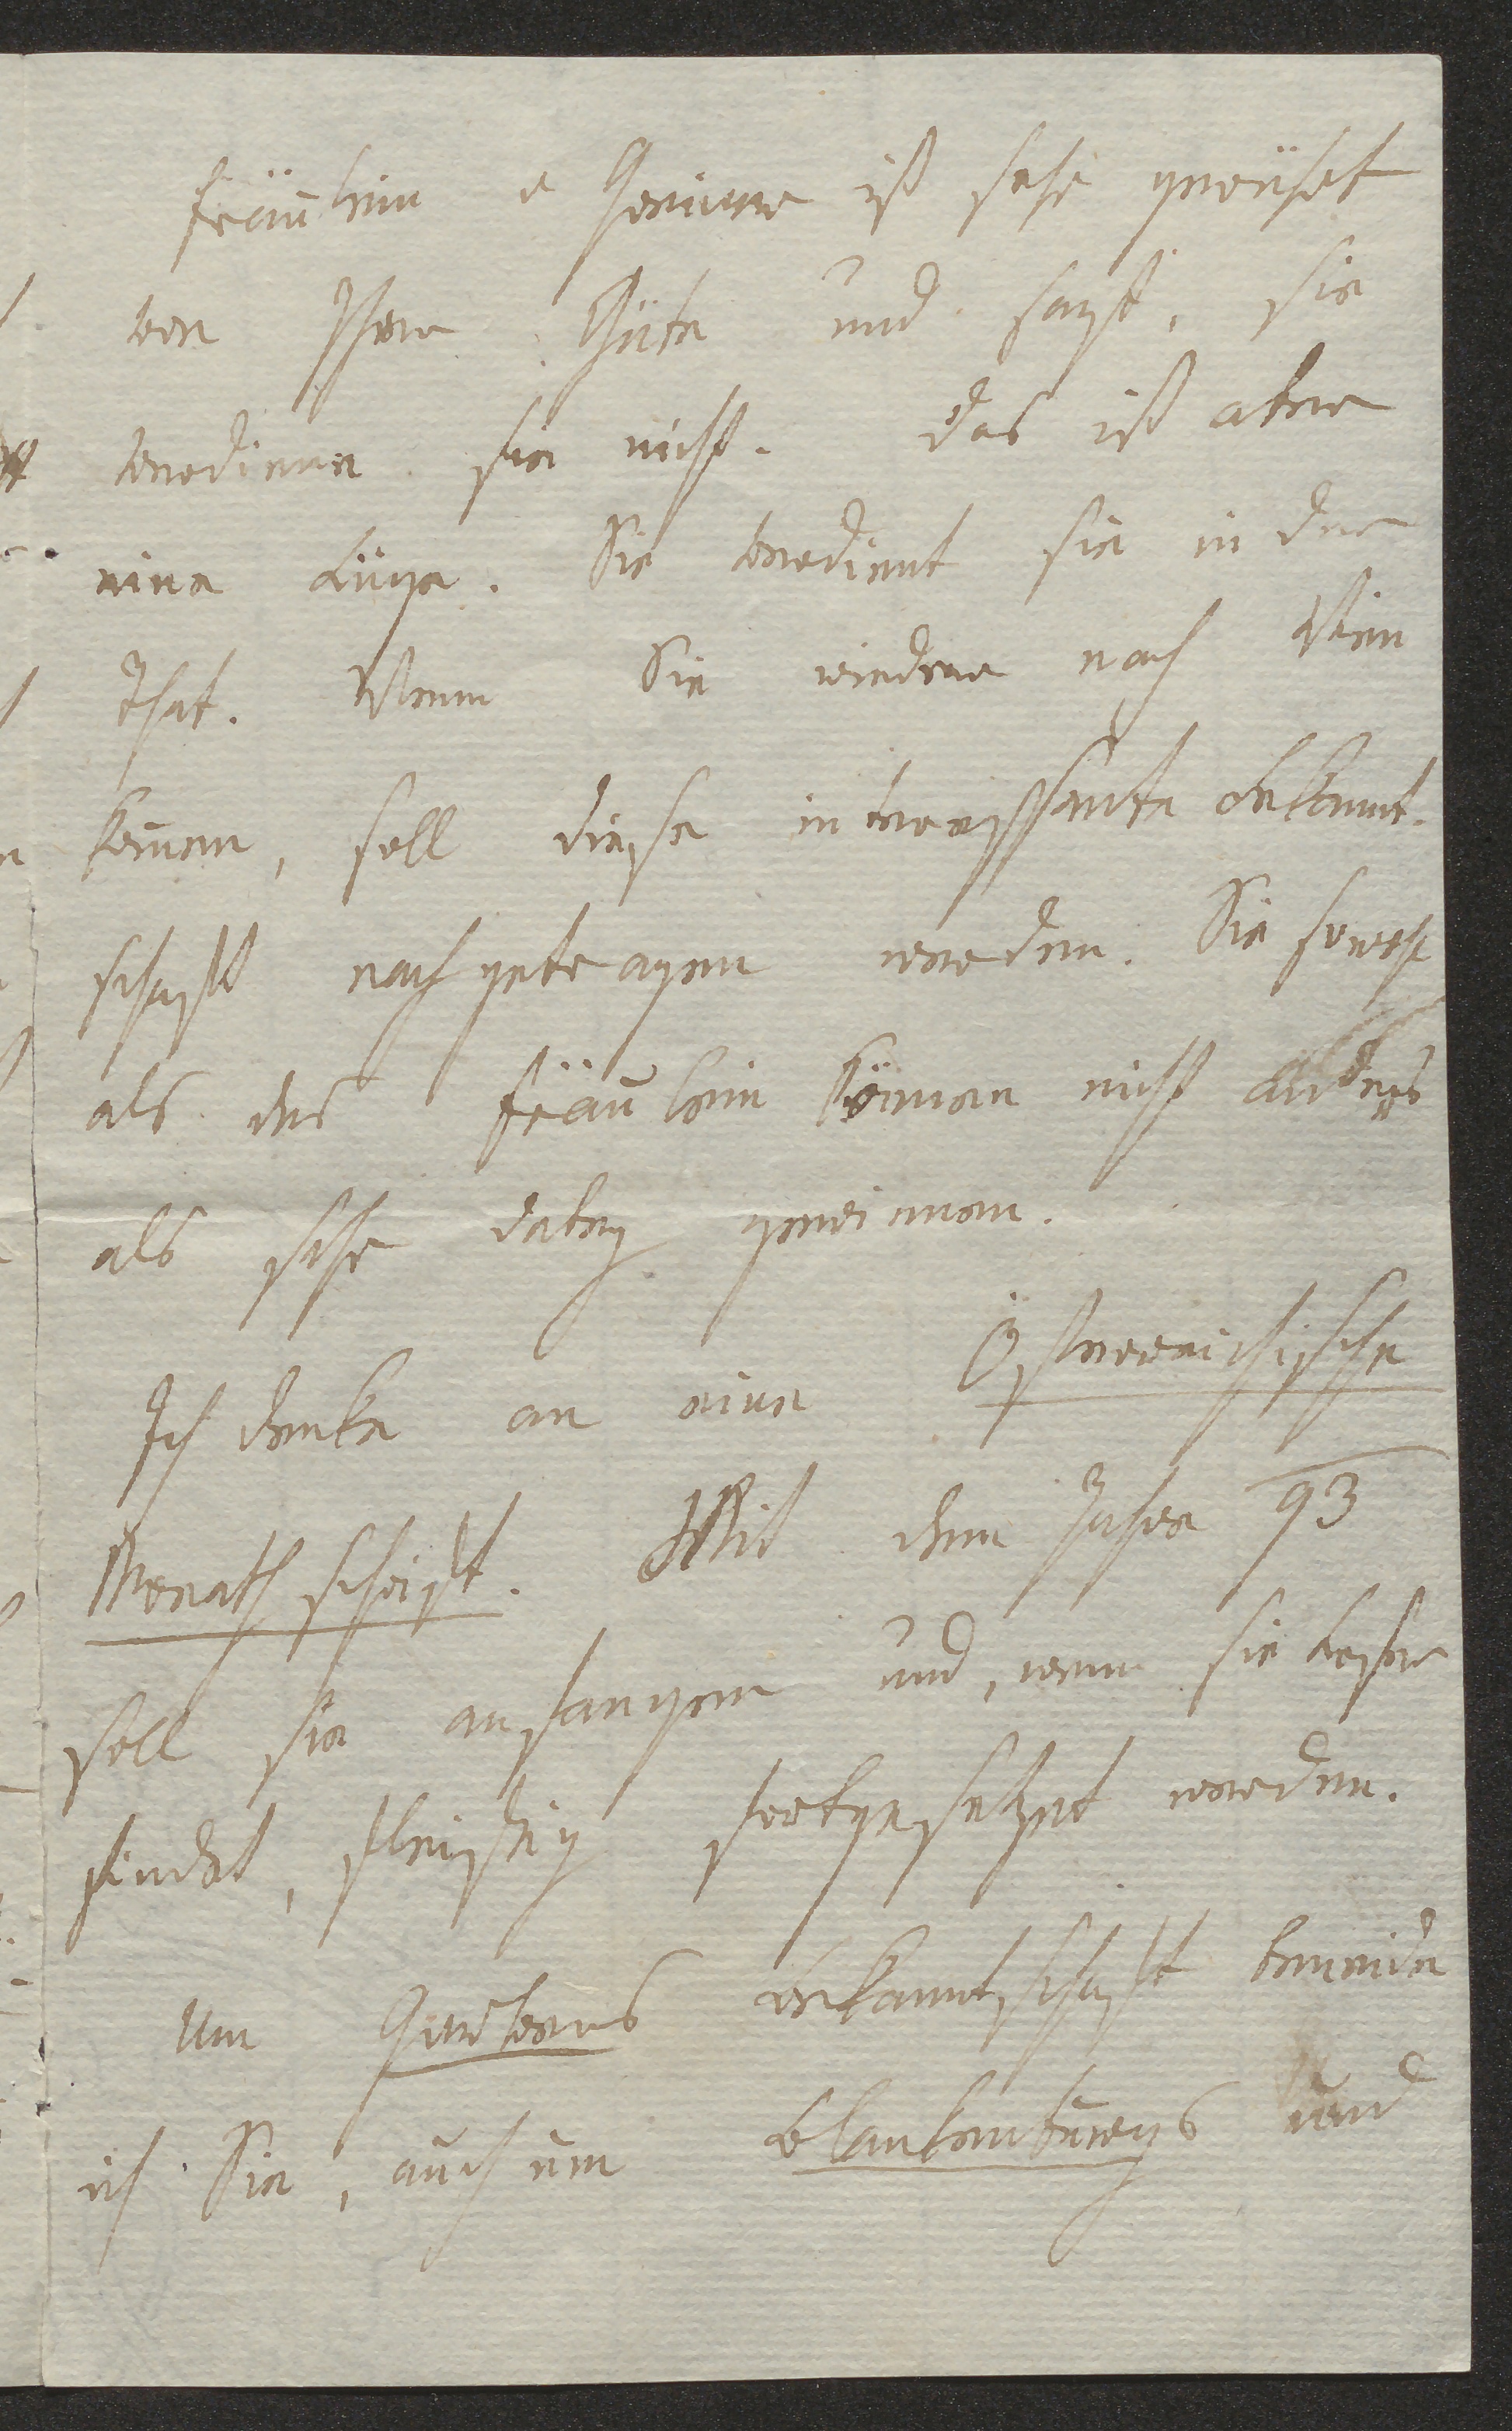 Fräulein v Greiner ist sehr gerühret
von Ihrer Güte und sagt, sie
verdiene sie nicht. Das ist aber
eine Lüge. Sie verdient sie in der
That. Wenn Sie wieder nach Wien
kom̅en, soll diese interessante Bekannt-
schaft nachgetragen werden. Sie sowohl
als das Fräulein können nicht anders
als sehr dabey gewinnen.
Ich denke an eine Österreichische
Monathschrift. Mit dem Jahre 93
soll sie anfangen und, wenn sie Leser
findet, fleißig fortgesetzet werden.
Um Garvens Bekanntschaft beneide
ich Sie, auch um Blankenburgs und